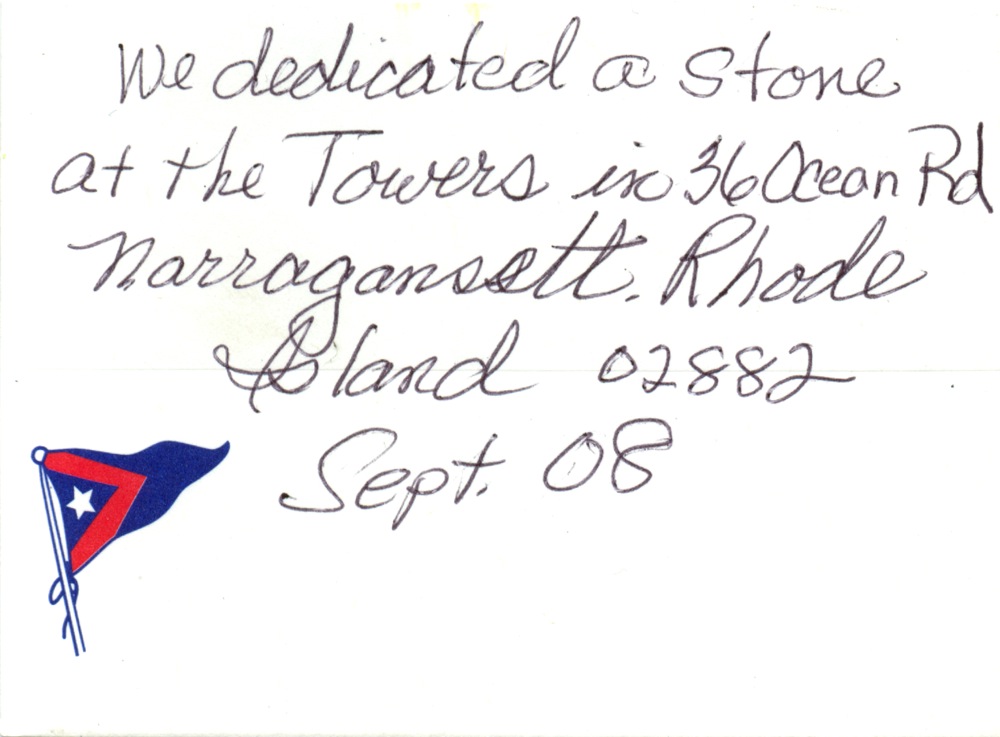 We dedicated a Stone
at the Towers in 36 Ocean Rd
Narragansett. Rhode
Island 02882
Sept. 08